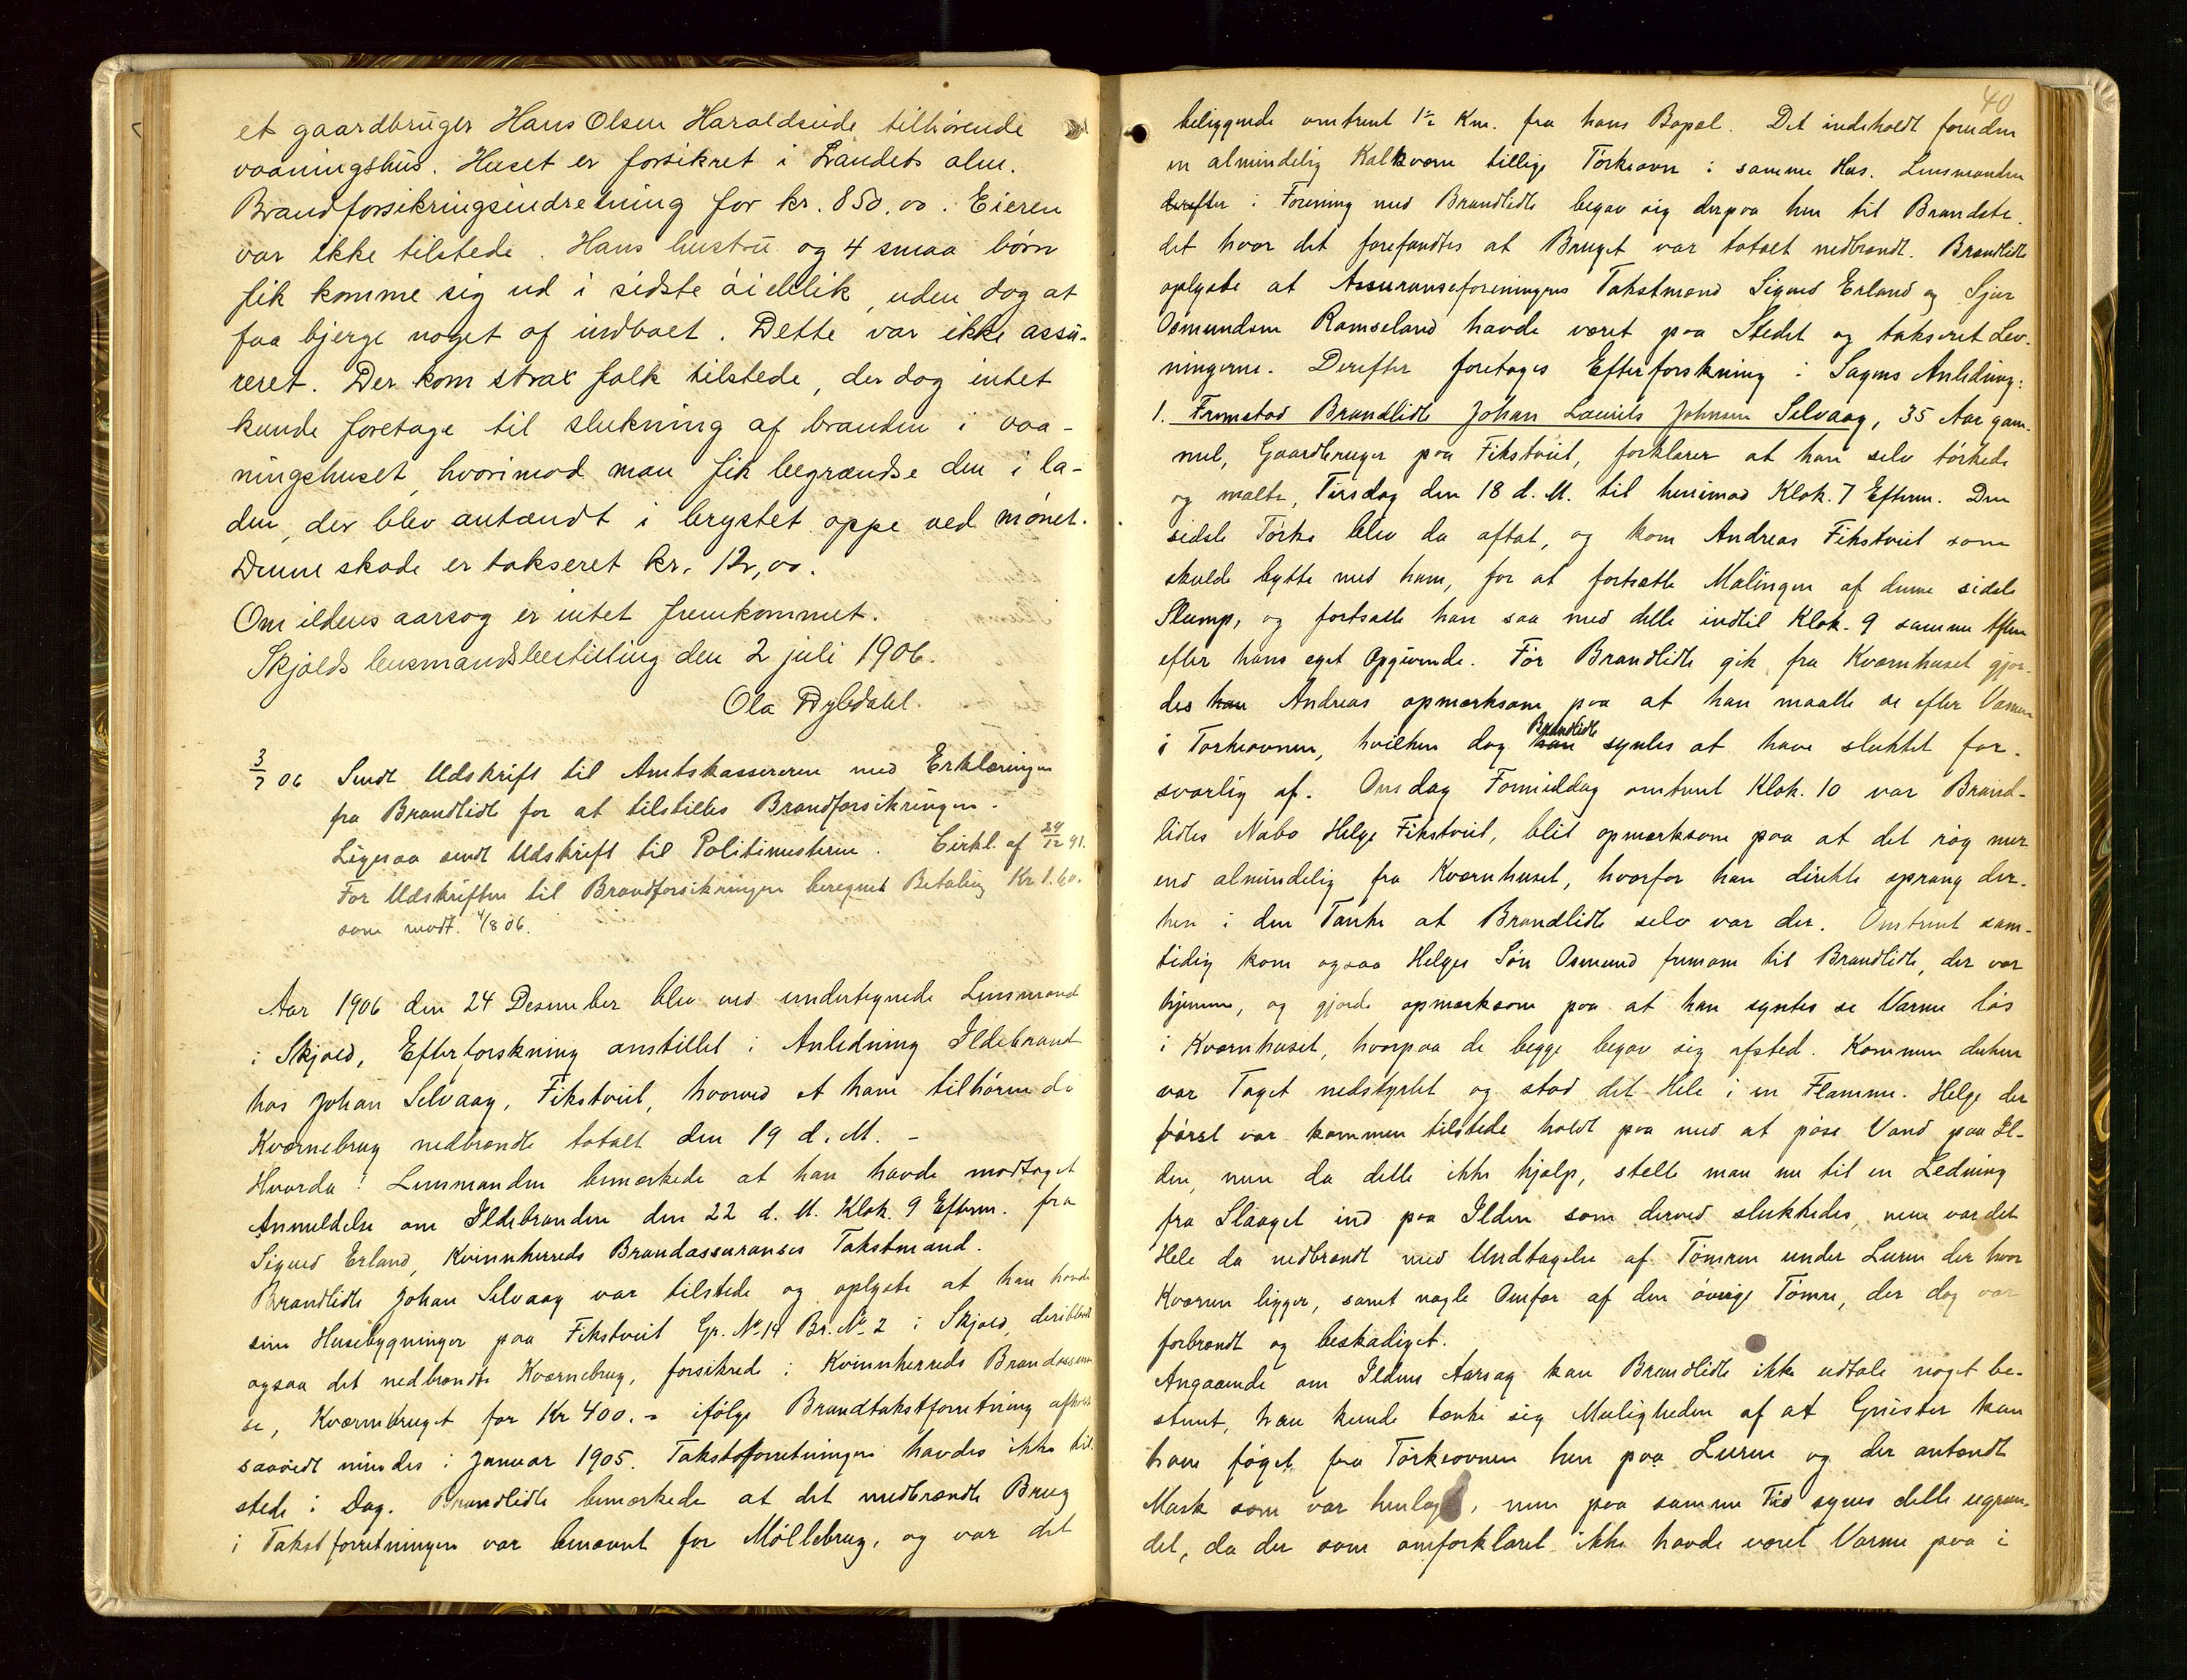 et gaardbruger Hans Olsen Haraldseide tilhørende
vaaningshus. Huset er forsikret i Landets alm.
Brandforsikringsindretning for kr. 850,00. Eieren
var ikke tilstede. Hans hustru og 4 smaa børn
fik komme sig ud i sidste øieblik, uden dog at
faa bjerge noget af indboet. Dette var ikke assu-
reret. Der kom strax folk tilstede, der dog intet
kunde foretage til slukning af branden i vaa-
ningshuset, hvorimod man fik begrændse den i la-
den, der blev antændt i brystet oppe ved mønet.
Denne skade er takseret kr. 12,00.
Om ildens aarsag er intet fremkommet.
Skjolds lensmandsbestilling den 2 juli 1906.
Ola Dybdahl.
3/7 06 Sendt Udskrift til Amtskassereren med Erklæringen
fra Brandlidte for at tilstilles Brandforsikringen.
Ligesaa sendt Udskrift til Politimesteren. Cirkl. af 24/12 91.
For Udskriften til Brandforsikringen beregnet Betaling Kr 1.60.
som modt. 4/8 06.
Aar 1906 den 24 Desember blev ved undertegnede Lensmand
i Skjold, Efterforskning anstillet i Anledning Ildebrand
hos Johan Selvaag, Fikstveit, hvorved et ham tilhørende
Kværnebrug nedbrændte totalt den 19 d. M. –
Hvorda! Lensmanden bemærkede at han havde modtaget
Anmeldelse om Ildebranden den 22 d. M. Klok. 9 Efterm. fra
Sigurd Erland, Kvinnherreds Brandassuranses Takstmand.
Brandlidte Johan Selvaag var tilstede og oplyste at han havde
sine Husebygninger paa Fikstveit Gr. No 14 Br. No 2 i Skjold, deriblandt
ogsaa det nedbrændte Kværnebrug, forsikrede i Kvinnherreds Brandassuran
se, Kværnbruget for Kr 400.– ifølge Brandtakstforretning afholdt
saavidt mindes i Januar 1905. Takstforretningen havdes ikke til-
stede i Dag. Brandlidte bemærkede at det nedbrændte Brug
i Takstforretningen var benævnt for Møllebrug, og var det
40
beliggende omtrent 1½ Km. fra hans Bopæl. Det indeholdt foruden
en almindelig Kalkværn tillige Tørkeovn i samme Hus. Lensmanden
derefter i Forening med Brandlidte begav sig derpaa hen til Brandste-
det hvor det forefandtes at Bruget var totalt nedbrændt. Brandlidte
oplyste at Assuranseforeningens Takstmænd Sigurd Erland og Sjur
Osmundsen Ramseland havde været paa Stedet og takseret Lev-
ningerne. Derefter foretages Efterforskning i Sagens Anledning:
1. Fremstod Brandlidte Johan Laurits Johnsen Selvaag, 35 Aar gam-
mel, Gaardbruger paa Fikstveit, forklarer at han selv tørkede
og malte, Tirsdag den 18 d. M. til henimod Klok. 7 Efterm. Den
sidste Tørke blev da aftat, og kom Andreas Fikstveit som
skulde bytte med ham, for at fortsætte Malingen af denne sidste
Slump, og fortsatte han saa med dette indtil Klok. 9 samme Aften
efter hans eget Opgivende. Før Brandlidte gik fra Kværnhuset gjor-
des han Andreas opmærksom paa at han maatte se efter Varmen
i Tørkeovnen, hvilken dog han Brandlidte syntes at have sluktet for-
svarlig af. Onsdag Formiddag omtrent Klok. 10 var Brand-
lidtes Nabo Helge Fikstveit, blit opmærksom paa at det røg mer
end almindelig fra Kværnhuset, hvorfor han direkte sprang der-
hen i den Tanke at Brandlidte selv var der. Omtrent sam-
tidig kom ogsaa Helges Søn Osmund frem til Brandlidte, der var
hjemme, og gjorde opmærksom paa at han syntes se Varme løs
i Kværnhuset, hvorpaa de begge begav sig afsted. Kommen derhen
var Taget nedstyrtet og stod det Hele i en Flamme. Helge der
først var kommen tilstede holdt paa med at øse Vand paa Il-
den, men da dette ikke hjalp, stelte man nu til en Ledning
fra Slaaget ind paa Ilden som derved slukkedes, men var det
Hele da nedbrændt med Undtagelse af Tømren under Luren der hvor
Kværnen ligger, samt nogle Omfar af den øvrige Tømre, der dog var
forbrændt og beskadiget.
Angaaende om Ildens Aarsag kan Brandlidte ikke udtale noget be-
stemt, han kunde tænke sig Muligheden af at Gnister kan
have føget fra Tørkeovnen hen paa Luren og der antændt
Mask som var henlagt, men paa samme Tid synes dette ugrun-
det, da der som omforklaret ikke havde været Varme paa i